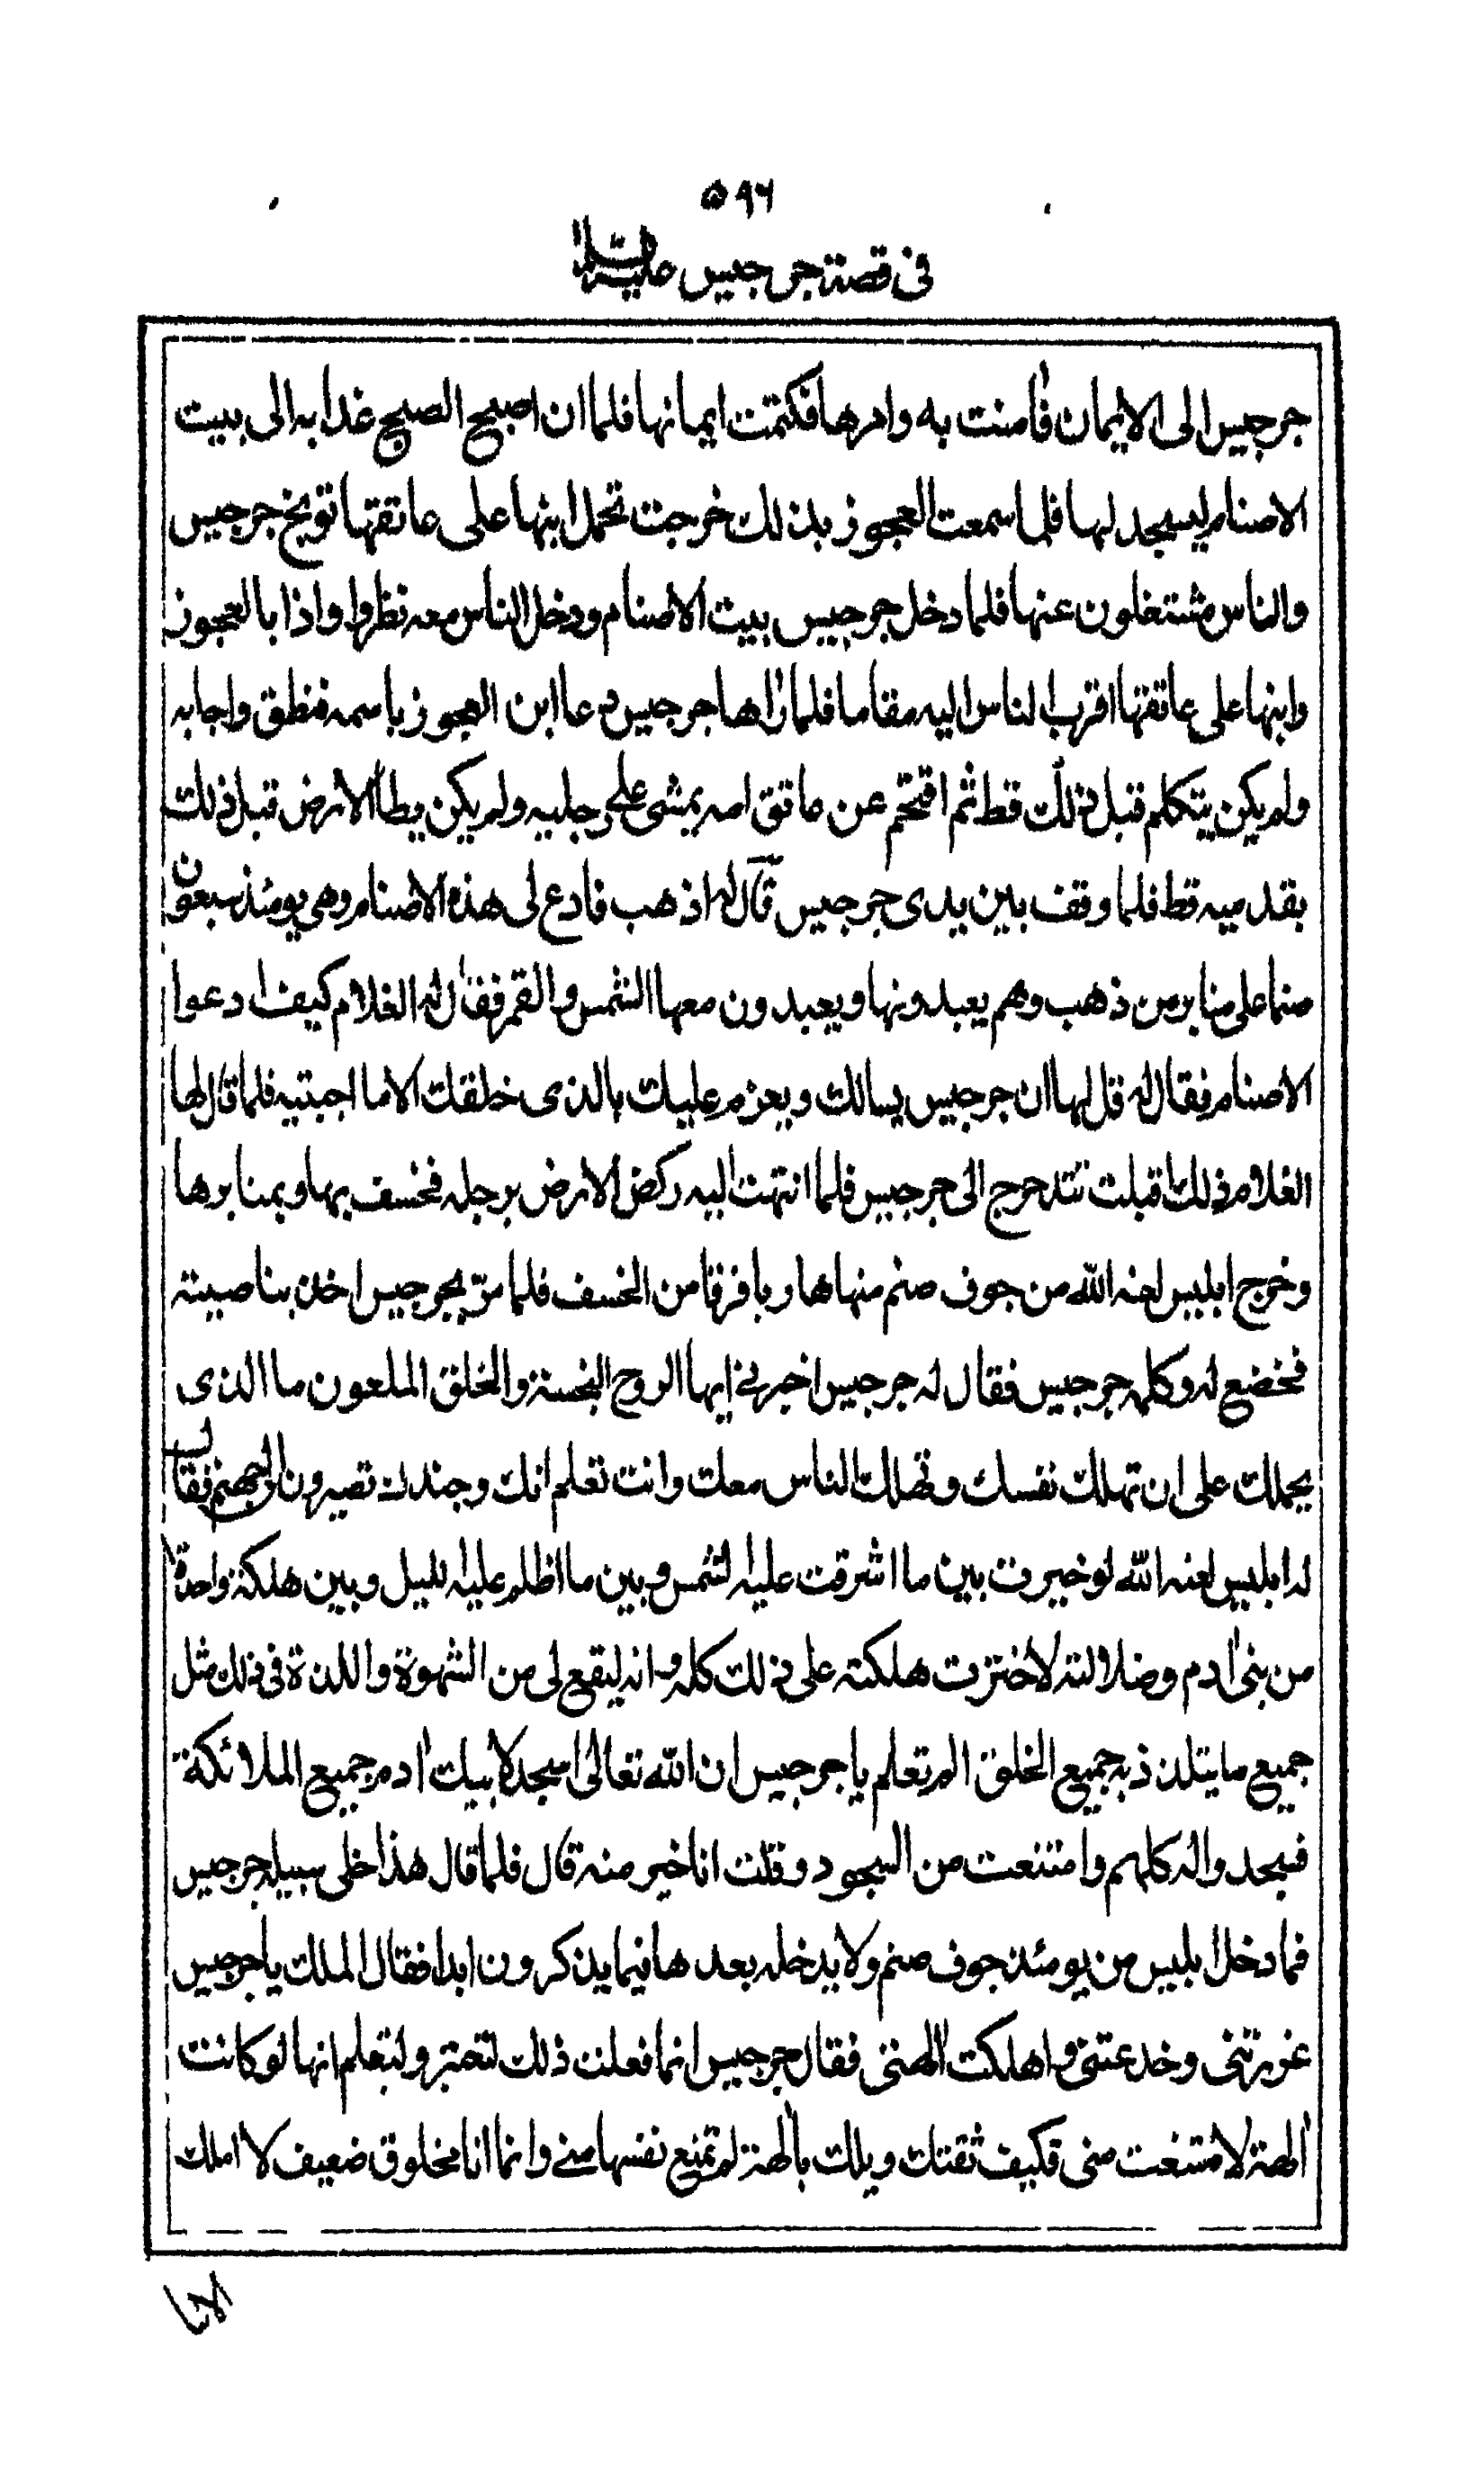 ۵۹۶
فى قصة جرجيس عليه السلام
جرجيس الى الايمان فاٰمنت به وامرها فكتمت ايمانها فلما ان اصبح الصبح غدا به الى بيت
الاصنام ليسجد لها فلما سمعت العجوز بذلك خرجت تحمل ابنها على عاتقها توبخ جرجيس
والناس مشتغلون عنها فلما دخل جرجيس بيت الاصنام ودخل الناس معه نظروا واذا بالعجوز
وابنها على عاتقها اقرب الناس اليه مقاما فلما راٰها جرجيس دعا ابن العجوز باسمه فنطق واجابه
ولم يكن يتكلم قبل ذلك قط ثم اقتحم عن عاتق امه يمشى على رجليه ولم يكن يطأ الارض قبل ذلك
بقدميه قط فلما وقف بين يدى جرجيس قال له اذهب فادع لى هذه الاصنام وهى يومئذ سبعون
صنما على منابر من ذهب وهم يعبدونها ويعبدون معها الشمس والقمر فقال له الغلام كيف ادعوا
الاصنام فقال له قل لها ان جرجيس يسالك ويعزم عليك بالذى خلقك الا ما اجبتيه فلما قال لها
الغلام ذلك اقبلت تتدحرج الى جرجيس فلما انتهت اليه ركض الارض برجله فخسف بها وبمنابرها
وخرج ابليس لعنه الله من جوف صنم منها هاربا فرقا من الخسف فلما مرّ بجرجيس اخذ بناصيته
فخضع له وكلمه جرجيس فقال له جرجيس اخبرنى ايها الروح النجسة والخلق الملعون ما الذى
يحملك على ان تهلك نفسك وتهلك الناس معك وانت تعلم انك وجندك تصيرون الى جهنم فقال
له ابليس لعنه الله لو خيرت بين ما اشرقت عليه الشمس وبين ما اظلم عليه الليل وبين هلكة واحدة
من بنى اٰدم وضلالته لاخترت هلكته على ذلك كله وانه ليقع لى من الشهوة واللذة فى ذلك مثل
جميع ما يتلذذ به جميع الخلق الم تعلم يا جرجيس ان الله تعالى اسجد لابيك اٰدم جميع الملائكة
فسجدوا له كلهم وامتنعت من السجود وقلت انا خير منه قال فلما قال هذا خلى سبيله جرجيس
فما دخل ابليس من يومئذ جوف صنم ولا يدخله بعدها فيما يذكرون ابدا فقال الملك يا جرجيس
غررتنى وخدعتنى واهلكت اٰلهتى فقال جرجيس انما فعلت ذلك لتعتبر ولتعلم انها لو كانت
اٰلهة لامتنعت منى فكيف ثقتك ويلك باٰلهة لم تمنع نفسها منى وانما انا مخلوق ضعيف لا املك
الا ما